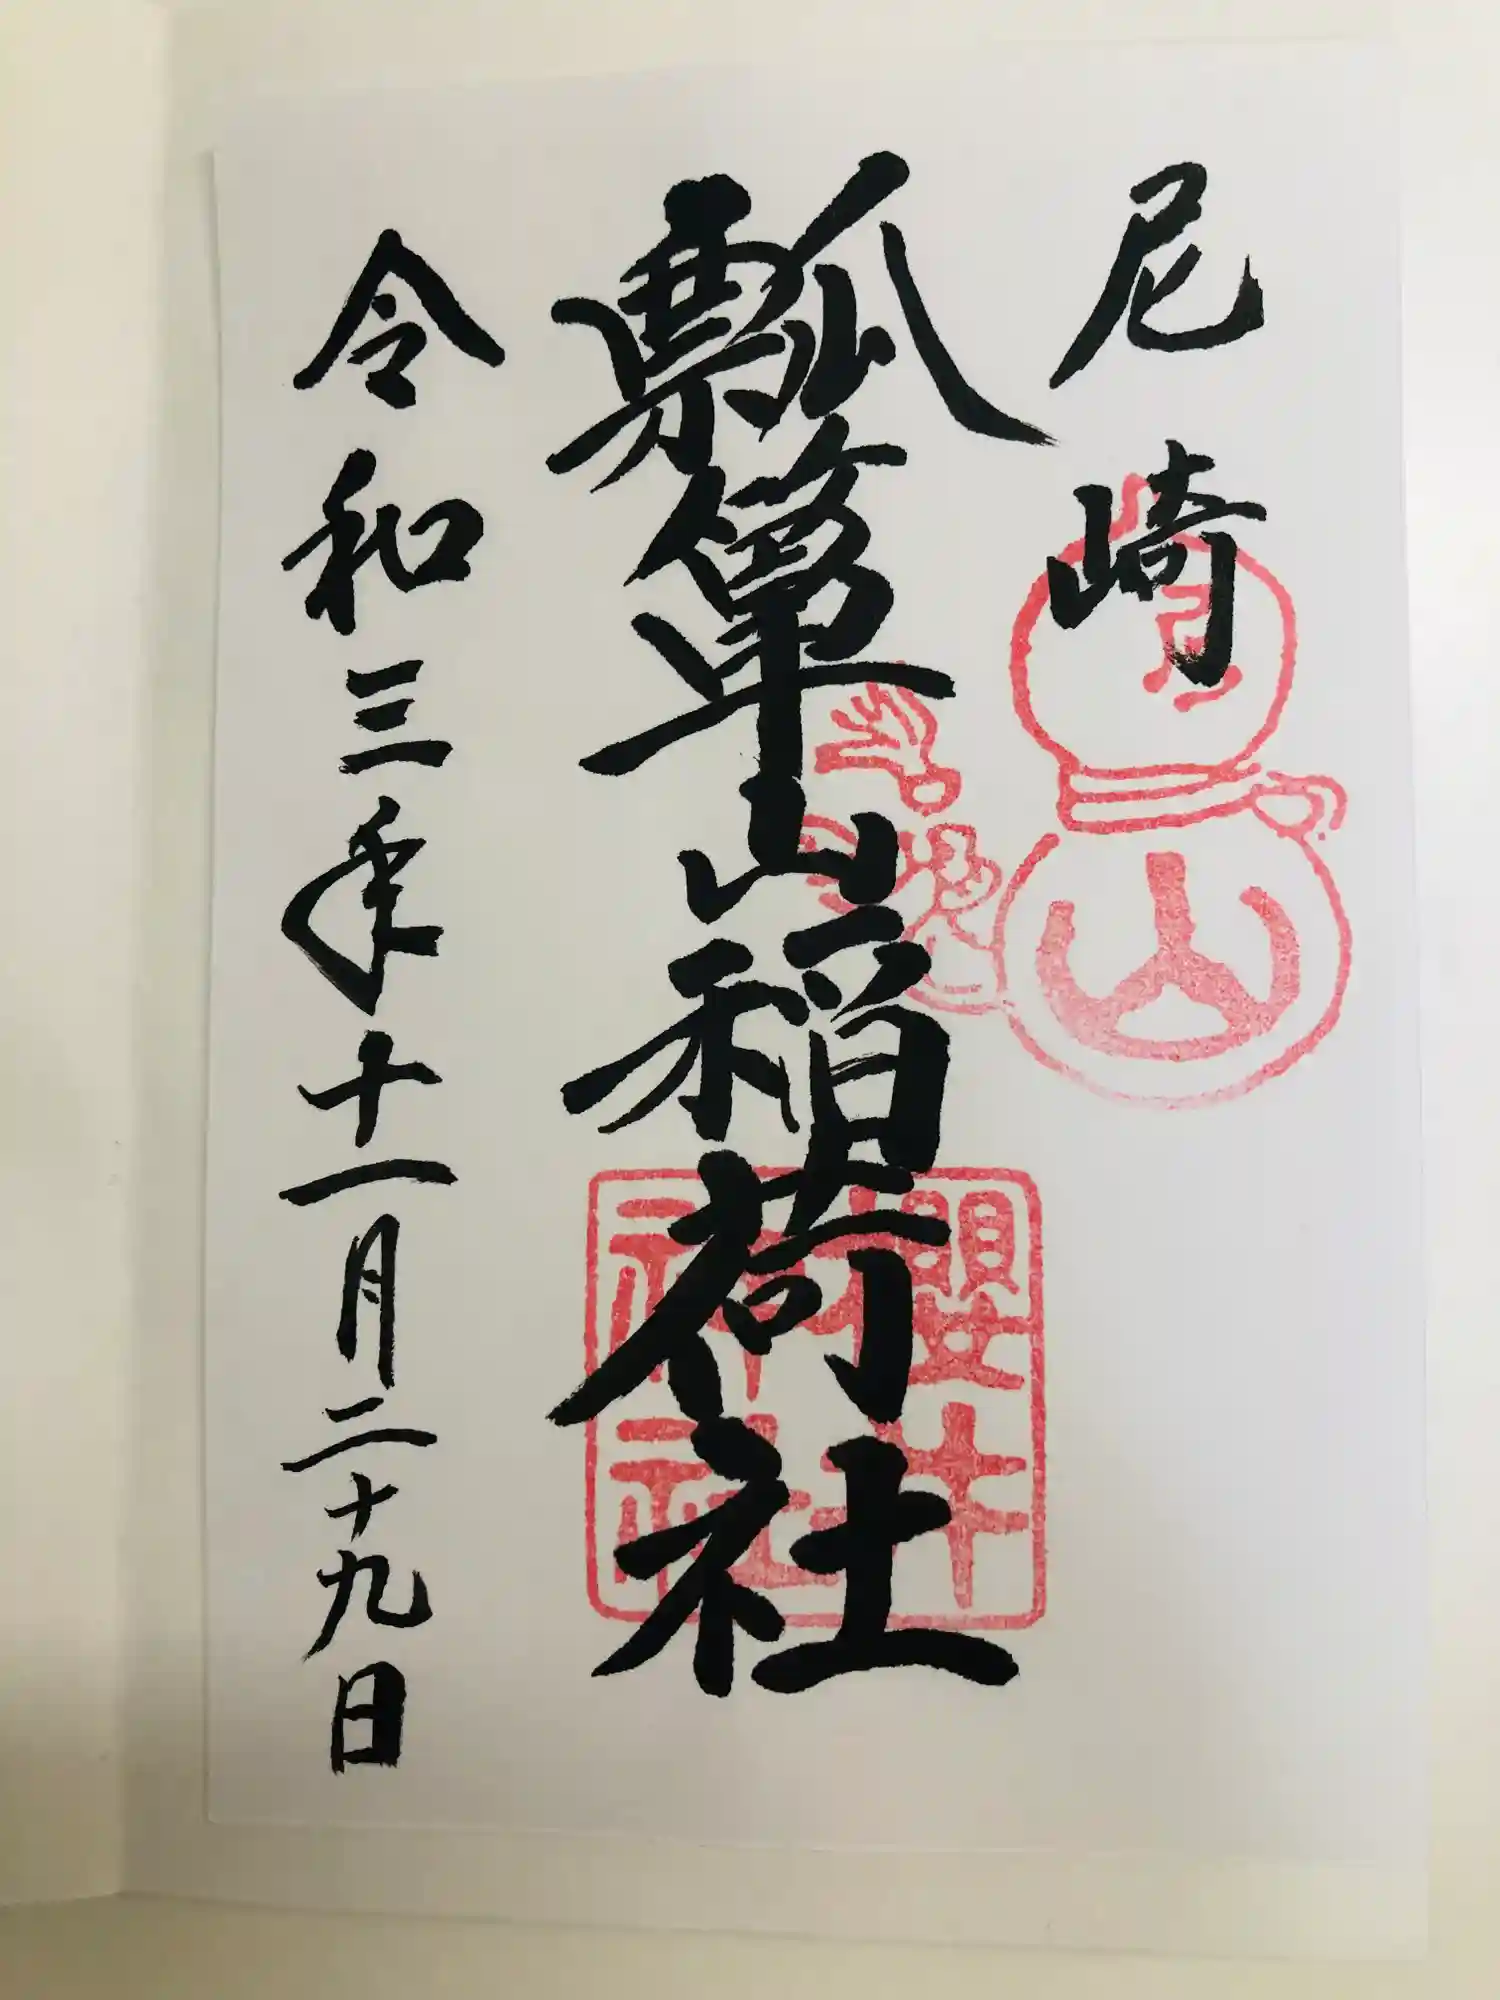 尼崎
瓢箪山稲荷社
櫻井
神社
令和三年十一月二十九日